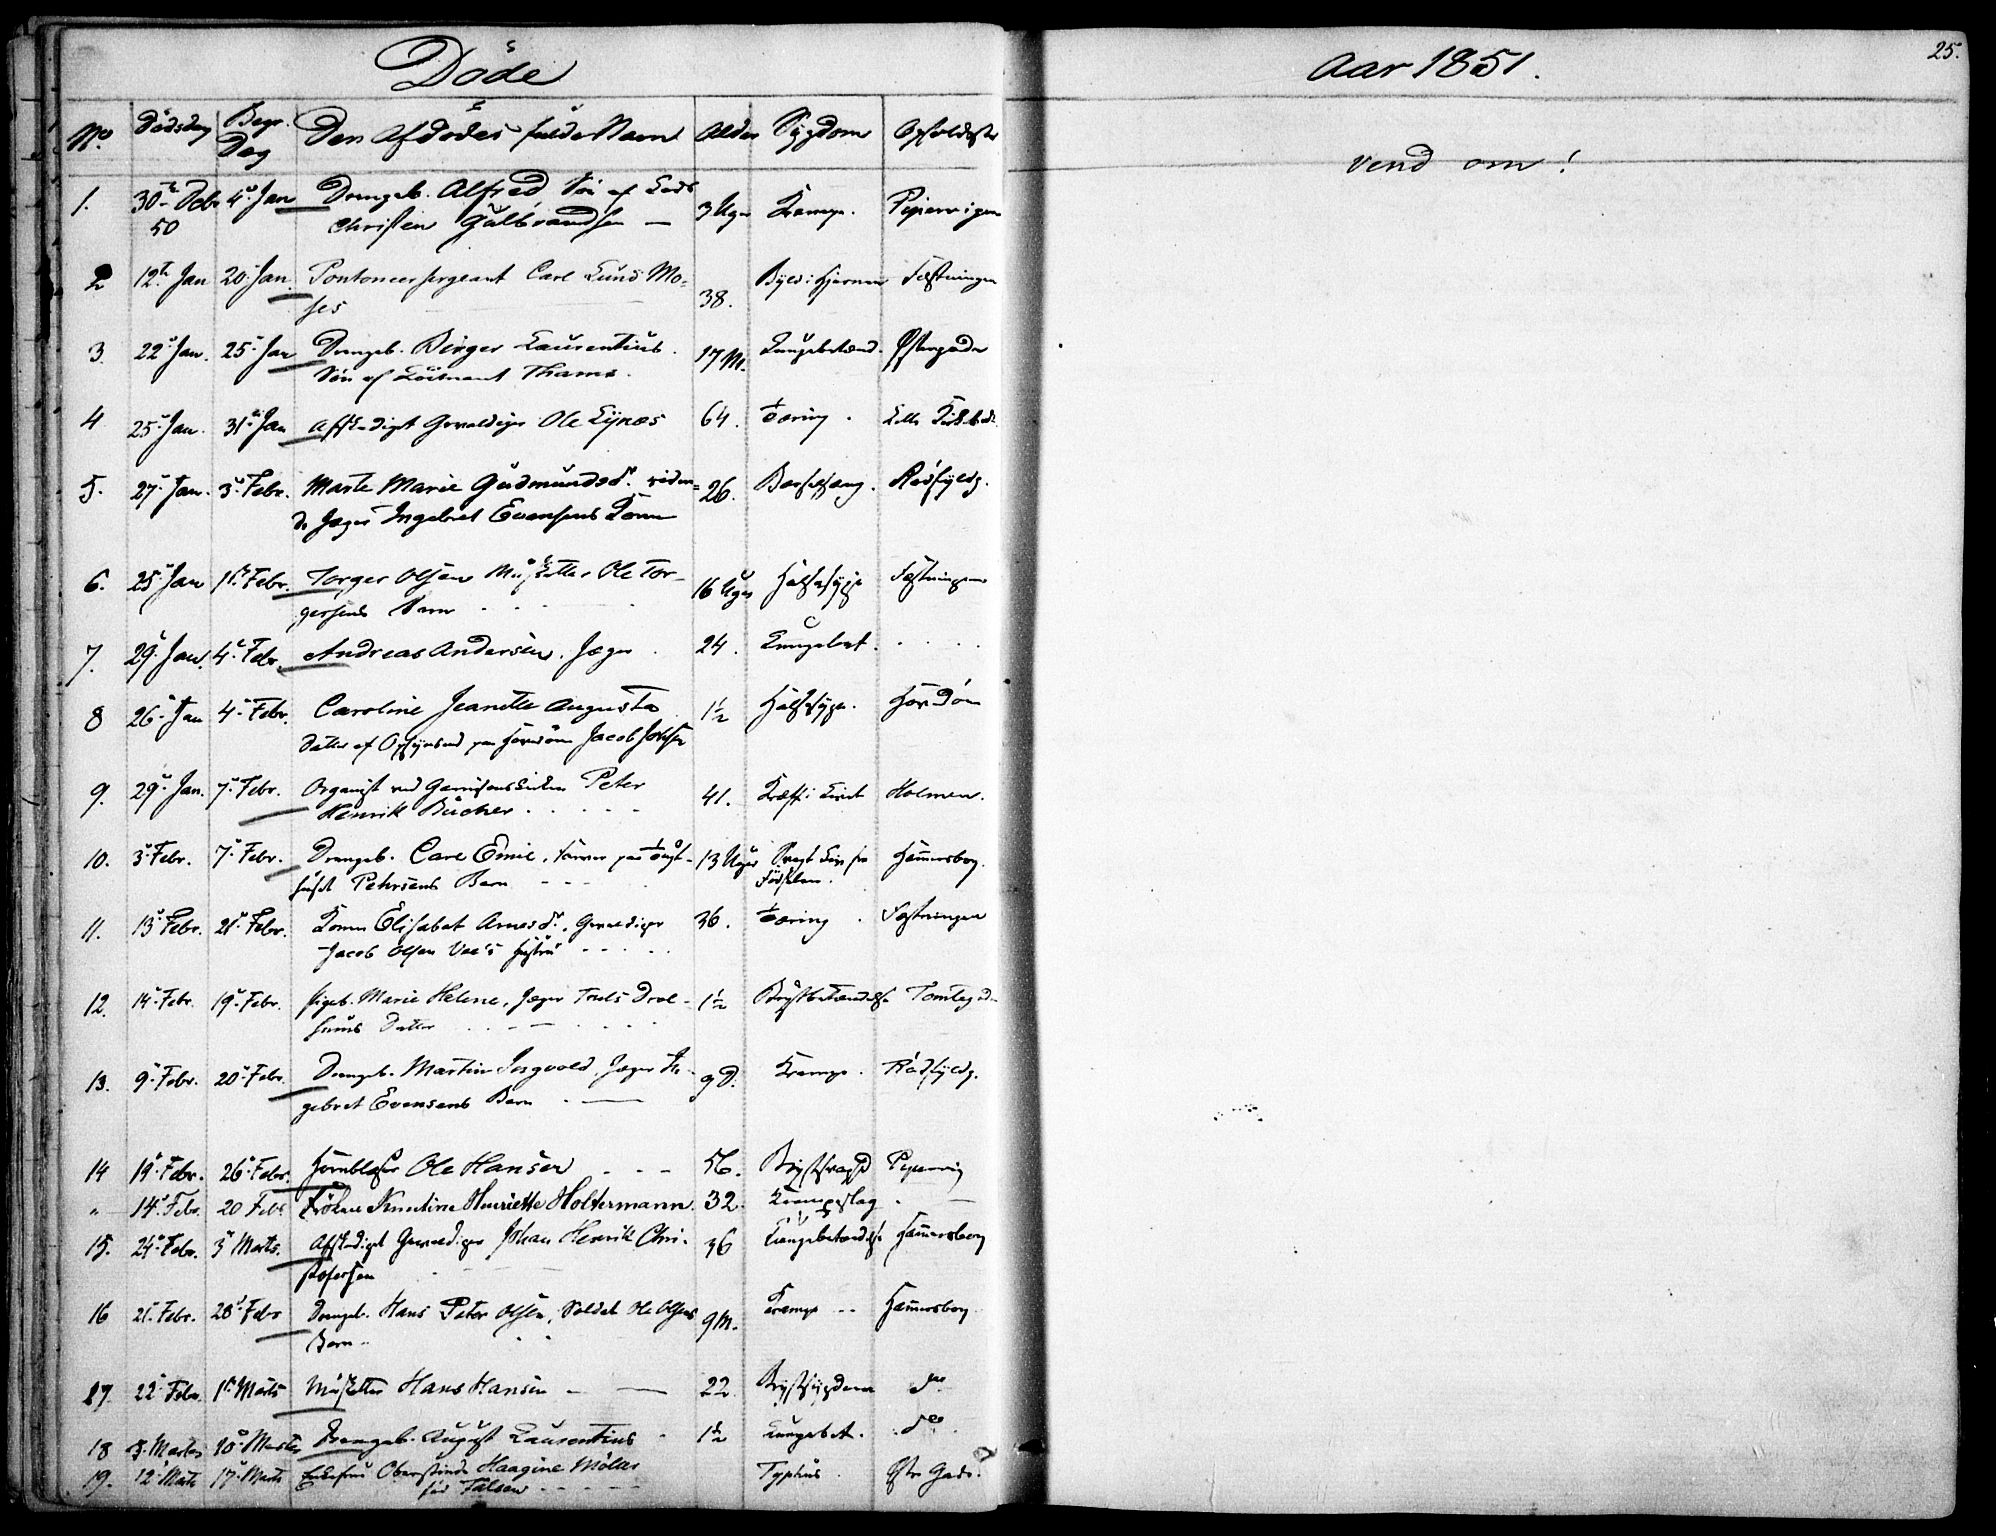 Døde
Aar 1851.
25.
No. Dødsdag Begr. Dag Den Afdødes fulde Navn Alder Sygdom Opholdsst.
vend om!
1. 30te Debr 50 4de Jan Drengeb. Alfred Søn af
Christen Gulbrandsen — 3 Uger Krampe. Pipervigen
2 12te Jan 20. Jan. Pontoneersergeant Carl Lund Mo=
ses 38. Byld i Hjernen Fæstningen
3. 22. Jan. 25. Jan Drengeb. Birger Laurentius.
Søn af Løitnant Thams. 17 M. Lungebetænd. Østergade
4 25. Jan. 31. Jan Afskediget Gevaldiger Ole Lynæs 64. Tæring.
5. 27. Jan. 3. Febr. Marte Marie Gudmundsdr. riden=
de Jæger Ingebret Evensens Kone 26. Barselseng. Rødfyldg.
6. 25. Jan 1ste Febr. Torger Olsen Musketter Ole Tor=
gersens Barn 16 Uger Halssyge Fæstningen
7. 29. Jan. 4. Febr. Andreas Andersen. Jæger 24. Lungebet.
8 26. Jan 4. Febr. Caroline Jeanette Augusta
Datter af Opsynsmd paa Hovedøen Jacob 1½ Halssyge. Hovedøen
9. 29. Jan. 7. Febr. Organist ved Garnisonskirken Peter
Henrik Bücher 41. Kræft i Livet Holmen.
10. 3. Febr. 7. Febr. Drengeb. Carl Emil, Farver paa Tugt=
huset Pehrsens Barn 13 Uger Svagt Liv fra
Fødselen. Hammersborg.
11. 13. Febr. 21. Febr. Konen Elisabet Arnesdr., Gevaldiger
Jacob Olsen Vee's Hustru 36. Tæring. Fæstningen
12. 14. Febr. 19. Febr. Pigeb. Marie Helene, Jæger Truls
Datter 1½ Brystbetændelse Tomtegd.
13. 9. Febr. 20. Febr. Drengeb. Martin Ingvold, Jæger In=
gebret Evensens Barn 9 D. Krampe. Rødfyldg.
14 19. Febr. 26. Febr. Hornblæser Ole Hansen 56. Brystsvaghd Pipervig
" 14. Febr. 20 Febr Frøken Knutine Henriette Holtermann. 32. Krampeslag
15. 24. Febr. 3. Marts. Afskediget Gevaldiger Johan Henrik Chri=
stofersen 36 Lungebetændelse Hammersborg
16 21. Febr. 28. Febr Drengeb. Hans Peter Olsen, Soldat Ole Olsens
Barn 9 M. Krampe Hammersborg
17. 22. Febr. 1ste Marts Musketter Hans Hansen 22 Brystsygdom do
18 3. Marts 10. Marts Drengeb. August Laurentius 1½ Lungebet. do.
19. 12. Marts 17. Marts Enkefru Oberstinde Haagine Møller
fød Falsen Typhus. Gade.